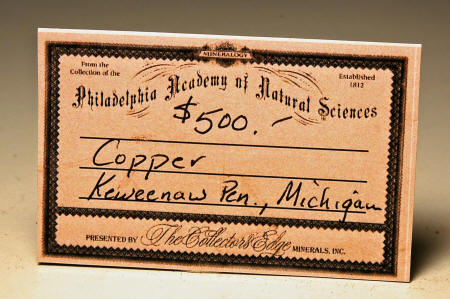 MINERALOGY
From the Collection of the
Established 1812
Philadelphia Academy of Natural Sciences
$500.-
Copper
Keweenaw Pen., Michigan
PRESENTED BY The Collector's Edge MINERALS, INC.